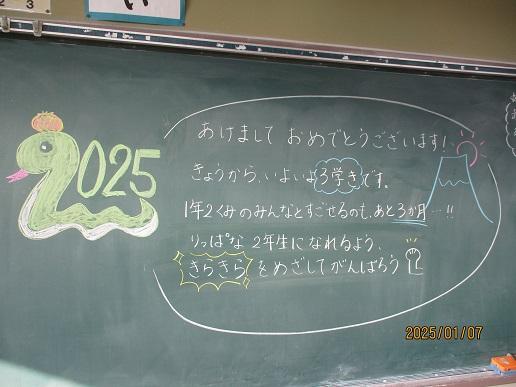 2 3
い
2025
あけまして おめでとうございます!
きょうから、いよいよ3学きです。
1年2くみのみんなとすごせるのも、あと3か月…!!
りっぱな 2年生になれるよう、
きらきら をめざしてがんばろう
2025/01/07